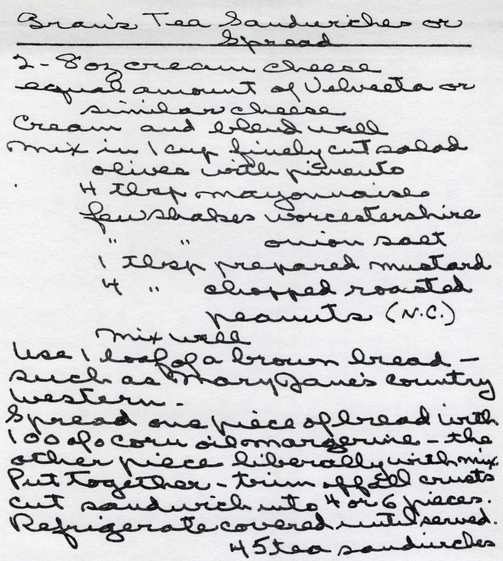 Bran's Tea Sandwiches or
Spread
2 - 8 oz cream cheese
equal amount of Velveeta or
similar cheese
Cream and blend well
Mix in 1 cup finely cut salad
olives with pimento
4 tbsp mayonnaise
few shakes worcestershire
" " onion salt
1 tbsp prepared mustard
4 " chopped roasted
peanuts (N.C.)
Mix well
Use 1 loaf of a brown bread -
such as Mary Jane's country
western.
Spread one piece of bread with
100 o/o corn oil margerine - the
other piece liberally with mix.
Put together - trim off all crusts
cut sandwich into 4 or 6 pieces.
Refrigerate covered until served.
45 tea sandwiches